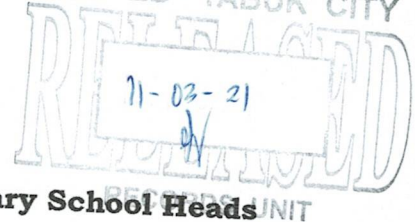 TABUK CITY
RELEASED
11-03-21
RECORDS UNIT
ary School Heads